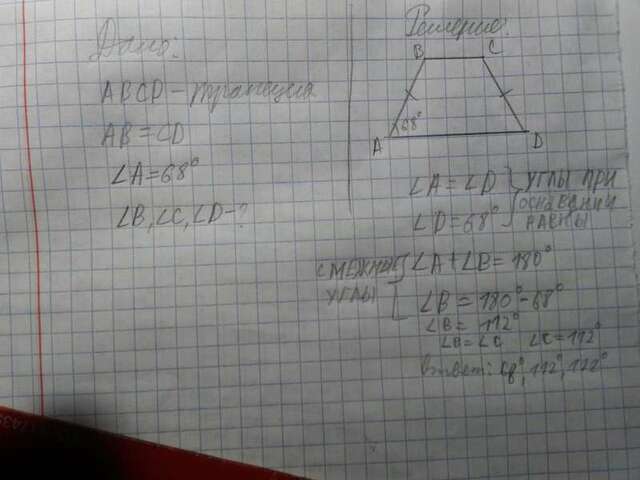 Дано:
ABCD - трапеция
AB = CD
∠A = 68°
∠B, ∠C, ∠D - ?
Решение:
B C
68°
A D
∠A = ∠D } УГЛЫ ПРИ
∠D = 68° ОСНОВАНИИ
РАВНЫ
СМЕЖНЫЕ ∠A + ∠B = 180°
УГЛЫ ∠B = 180° - 68°
∠B = 112°
∠B = ∠C ∠C = 112°
Ответ: 68°, 112°, 112°